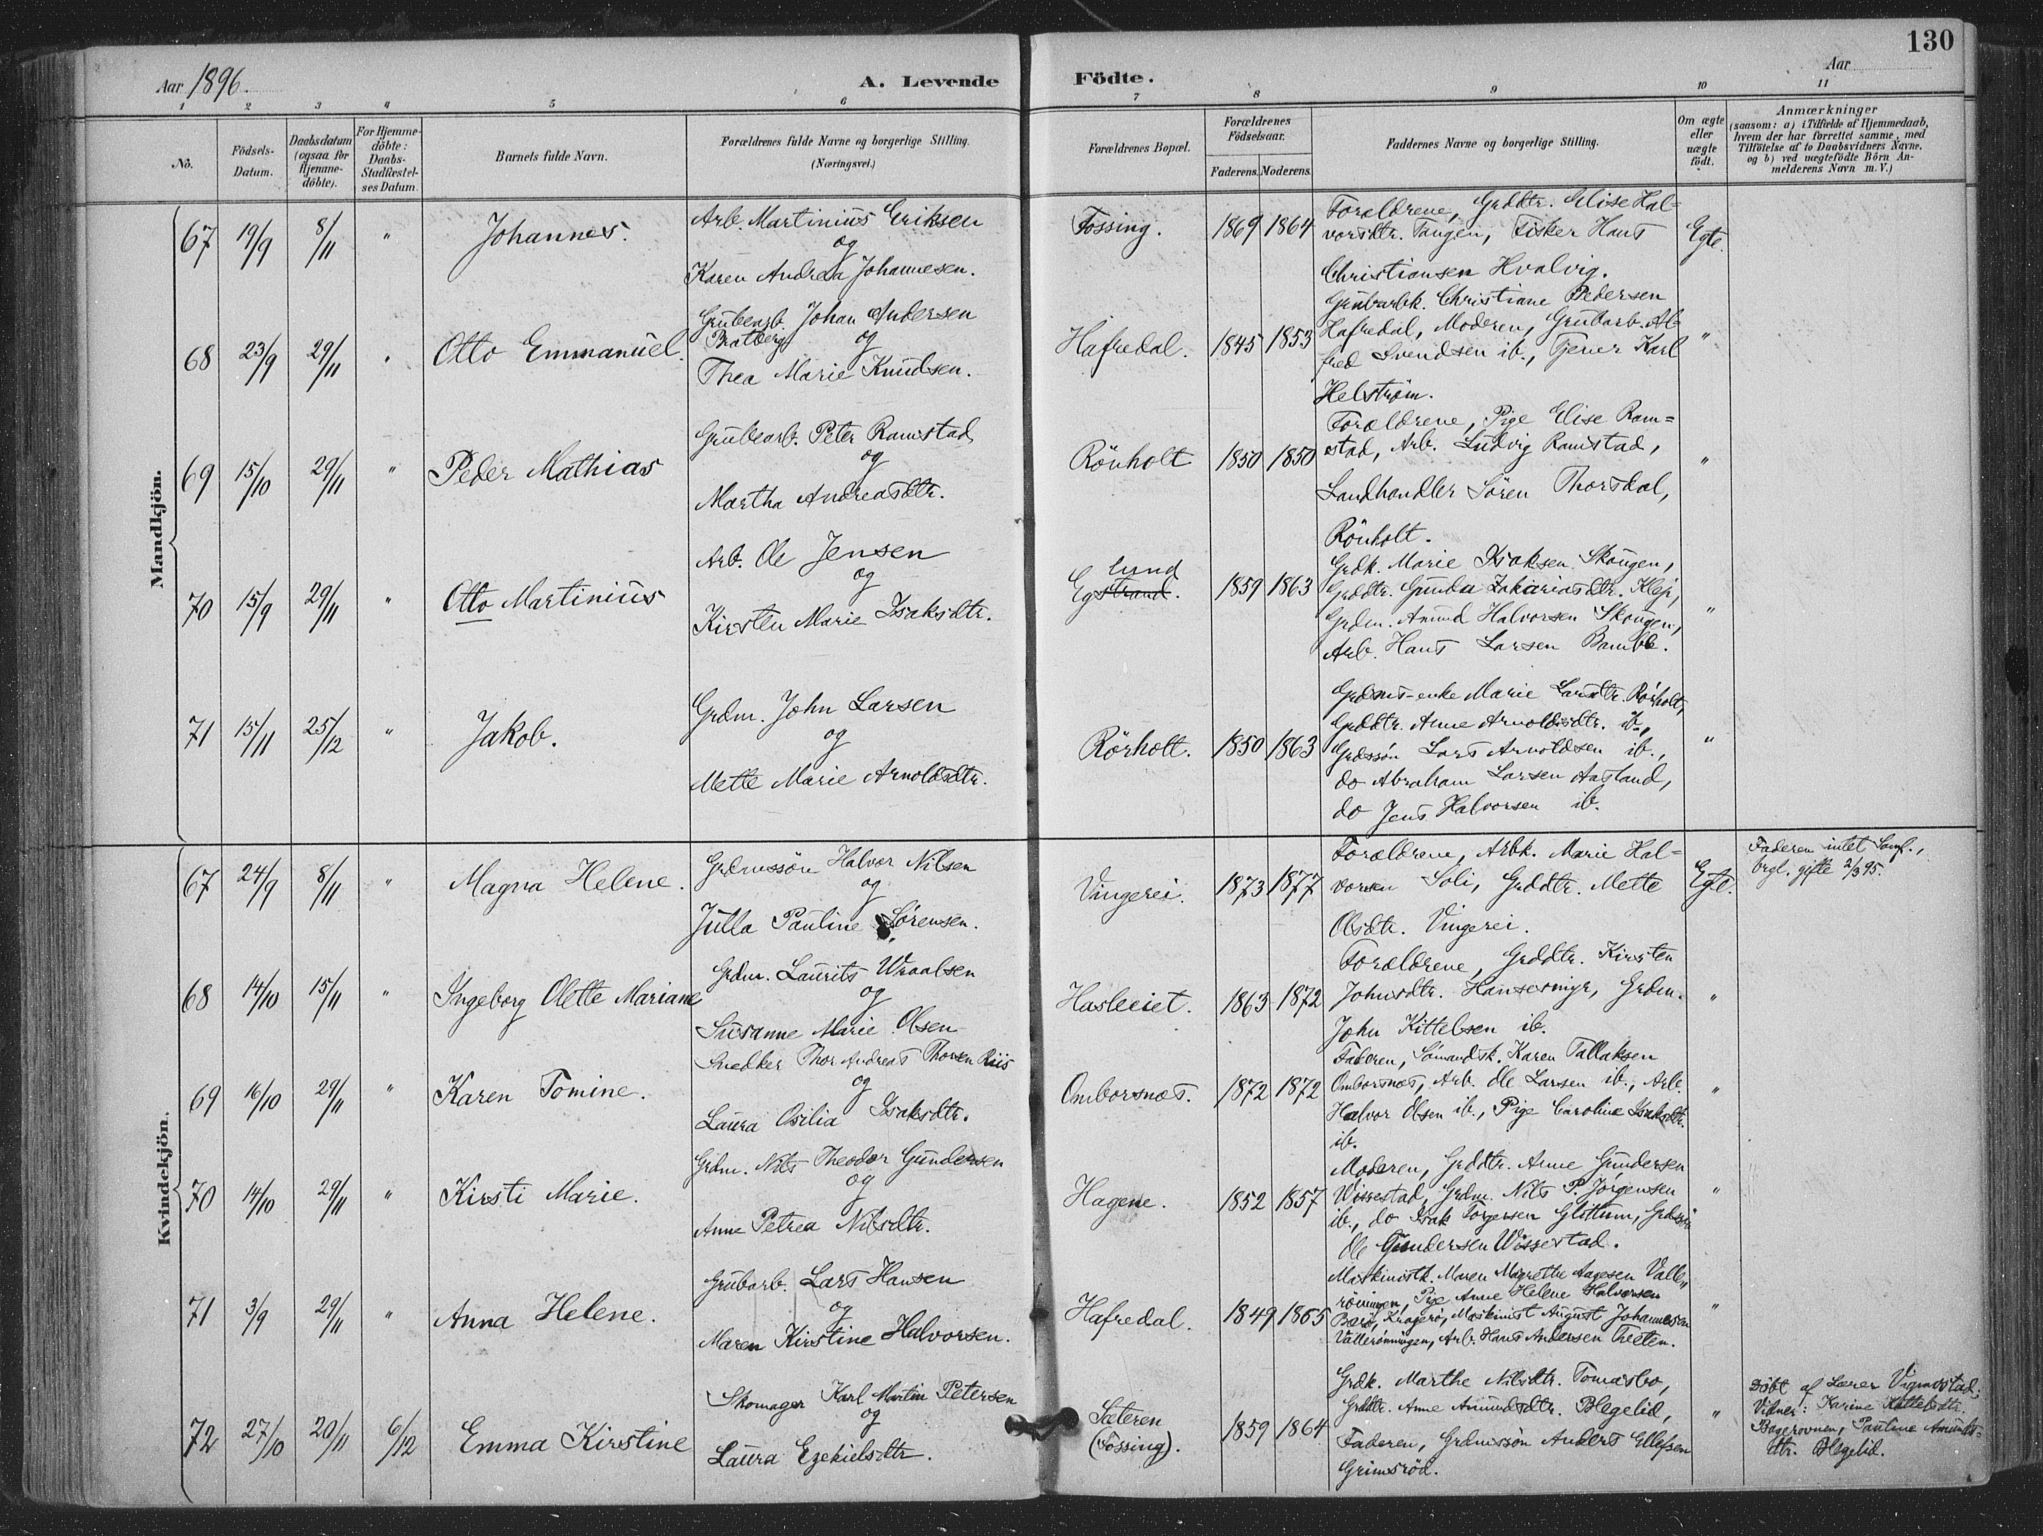 130
Aar 1896. A. Levende Födte. Aar
1 2 3 " 5 6 7 8 9 10 11
No. Födsels-Datum. Daabsdatum (ogsaa for Hjemmedöbte). For Hjemmedöbte: Daabs-Stadfæstelses Datum. Barnets fulde Navn. Forældrenes fulde Navne og borgerlige Stilling. (Næringsvei.) Forældrenes Bopæl. Forældrenes Födselsaar. Faderens. Moderens. Faddernes Navne og borgerlige Stilling. Om ægte eller uægte födt. Anmærkninger (saasom: a) i Tilfælde af Hjemmedaab, hvem der har forrettet samme, med Tilföielse af to Daabsvidners Navne, og b) ved uægtefödte Börn Anmelderens Navn m. V.)
Mandkjön.
67 19/9 8/11 " Johannes. Arb. Martinius Eriksen
og
Karen Andrea Johannesen.
Fossing. 1869 1864 Forældrene, Grddtr. Elise Hal-
vorsdtr. Tangen, Fisker Hans
Christiansen Hvalvig.
Egte.
68 23/9 29/11 " Otto Emmanuel. Grubearb. Johan Andersen
og
Thea Marie Knudsen.
Hafredal. 1845 1853 Grubarbk. Christiane Pedersen
Hafredal, Moderen, Grubarb. Al-
fred Svendsen ib., Tjener Karl
Helström.
"
69 15/10 29/11 " Peder Mathias Grubearb. Peter Ramstad
og
Martha Andreasdtr.
Rönholt 1850 1850 Forældrene, Pige Elise Ram=
stad, Arb. Ludvig Ramstad,
Landhandler Sören Thorsdal,
Rönholt.
"
70 15/9 29/11 " Otto Martinius Arb. Ole Jensen
og
Kirsten Marie Isaksdtr.
lund
Egstrand. 1859 1863 Grdk. Marie Isaksen Skougen,
Grddtr. Gunda Zakariasdtr. Klep,
Grdm. Amund Halvorsen Skougen,
Arb. Hans Larsen Bamble.
"
71 15/11 25/12 " Jakob. Grdm. John Larsen
og
Mette Marie Arnoldsdtr.
Rörholt. 1850 1863 Grdms-enke Marie Larsdtr. Rörholt,
Grddtr. Anne Arnoldsdtr. ib.,
Grdssön Lars Arnoldsen ib.,
do Abraham Larsen Aasland,
do Jens Halvorsen ib.
"
Kvindekjön.
67 24/9 8/11 " Magna Helene. Grdmssön Halvor Nilsen
og
Julla Pauline Sörensen.
Vingerei. 1873 1877 Forældrene, Arbk. Marie Hal-
vorsen Soli, Grddtr. Mette
Olsdtr. Vingerei.
Egte. Faderen intet Samf.,
brgl. gifte 2/3 95.
68 14/10 15/11 " Ingeborg Olette Mariane Grdm. Laurits Wraalsen
og
Susanne Marie Olsen
Hasleeiet. 1863 1872 Forældrene, Grddtr. Kirsten
Johnsdtr. Hansesmyr, Grdm.
John Kittelsen ib.
"
69 16/10 29/11 " Karen Tomine. Snedker Thor Andreas Thorsen Riis
og
Laura Osilia Isaksdtr.
Omborsnæs. 1872 1872 Faderen, Sömandsk. Karen Tallaksen
Omborsnæs, Arb. Ole Larsen ib., Arb.
Halvor Olsen ib., Pige Caroline Isaksdtr.
ib.
"
70 14/10 29/11 " Kirsti Marie. Grdm. Nils Theodor Gundersen
og
Anne Petrea Nilsdtr.
Hagene. 1852 1857 Moderen, Grddtr. Anne Gundersen
Wissestad, Grdm. Nils P. Jörgensen
ib., do Isak Torgersen Glittum, Grdssön
Ole Gundersen Wissestad.
"
71 3/9 29/11 " Anna Helene. Grubarb. Lars Hansen
og
Maren Kirstine Halvorsen.
Hafredal. 1849 1865 Maskinistk. Maren Magrethe Aagesen Valle-
röningen, Pige Anne Helene Halvorsen
Barö, Kragerö, Maskinist August Johannesen
Valleröningen, Arb. Hans Andersen Tveten.
"
72 27/10 20/11 6/12 Emma Kirstine Skomager Karl Martin Petersen
og
Laura Ezekielsdtr.
Sæteren
(Fossing). 1859 1864 Grdk. Marthe Nilsdtr. Tomasbo,
Grddtr. Anne Amundsdtr. Blegelid,
Faderen, Grdmssön Anders Ellefsen
Grimsröd.
" Döbt af Lærer Vignestad.
Vidner: Karine Kittelsdtr.
Bagerovnen, Pauline Amunds-
dtr. Blegelid.